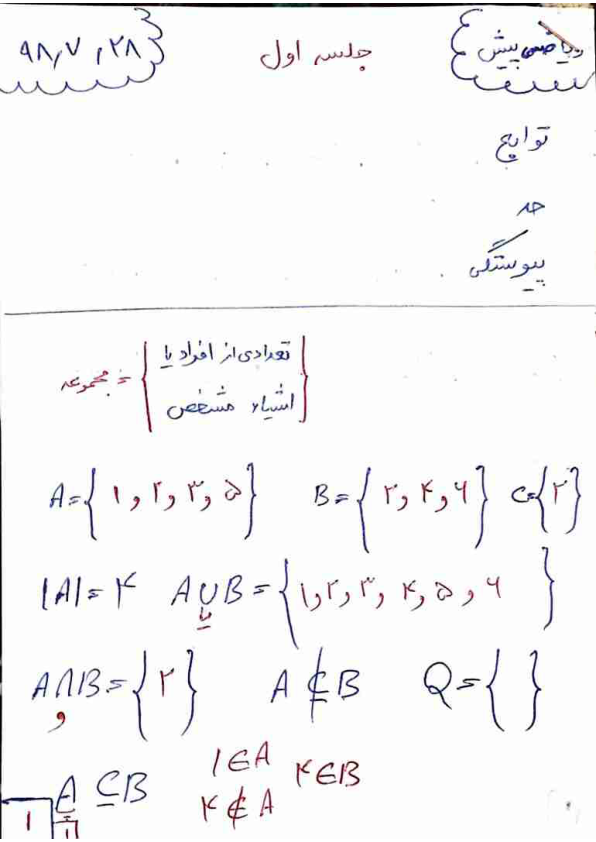 ریاضی پیش جلسه اول ۹۸,۷,۲۸
توابع
حد
پیوستگی
مجموعه = { تعدادی از افراد یا
اشیاء مشخص }
A={۱,۲,۳,۵} B={۲,۴,۶} C={۲}
|A|=۴ A∪B={۱,۲,۳,۴,۵,۶}
یا
A∩B={۲} A⊄B Q={ }
و
A⊆B ۱∈A ۴∈B
۴∉A
۱